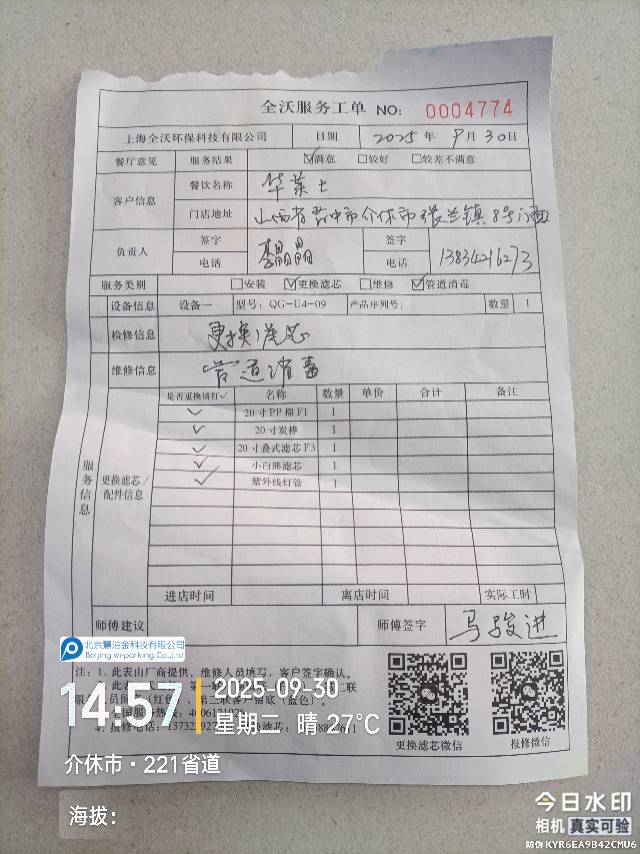 全沃服务工单 NO: 0004774
上海全沃环保科技有限公司 日期 2025 年 9 月 30 日
餐厅意见 服务结果 ☑满意 □较好 □较差不满意
客户信息 餐饮名称 华莱士
门店地址 山西省晋中市介休市张兰镇
负责人 签字 李晶晶 签字
电话 电话 13834216273
服务类别 □安装 ☑更换滤芯 □维修 ☑管道消毒
设备信息 设备一 型号: QG-U4-09 产品序列号: 数量 1
检修信息 更换滤芯
维修信息 管道消毒
服务信息 更换滤芯/配件信息
是否更换请打✓ 名称 数量 单价 合计 备注
✓ 20寸PP棉F1 1
✓ 20寸炭棒 1
✓ 20寸叠式滤芯F3 1
✓ 小白熊滤芯 1
✓ 紫外线灯管 1
进店时间 离店时间 实际工时
师傅建议 师傅签字 马骏进
北京慧泊金科技有限公司
Beijing wi-parking Co.,Ltd
注: 1. 此表由厂商提供, 维修人员填写, 客户签字确认。
14:57 2025-09-30
星期二 晴 27°C
更换滤芯微信 报修微信
介休市·221省道
海拔:
今日水印
相机 真实可验
防伪 KYR6EA9B42CMU6